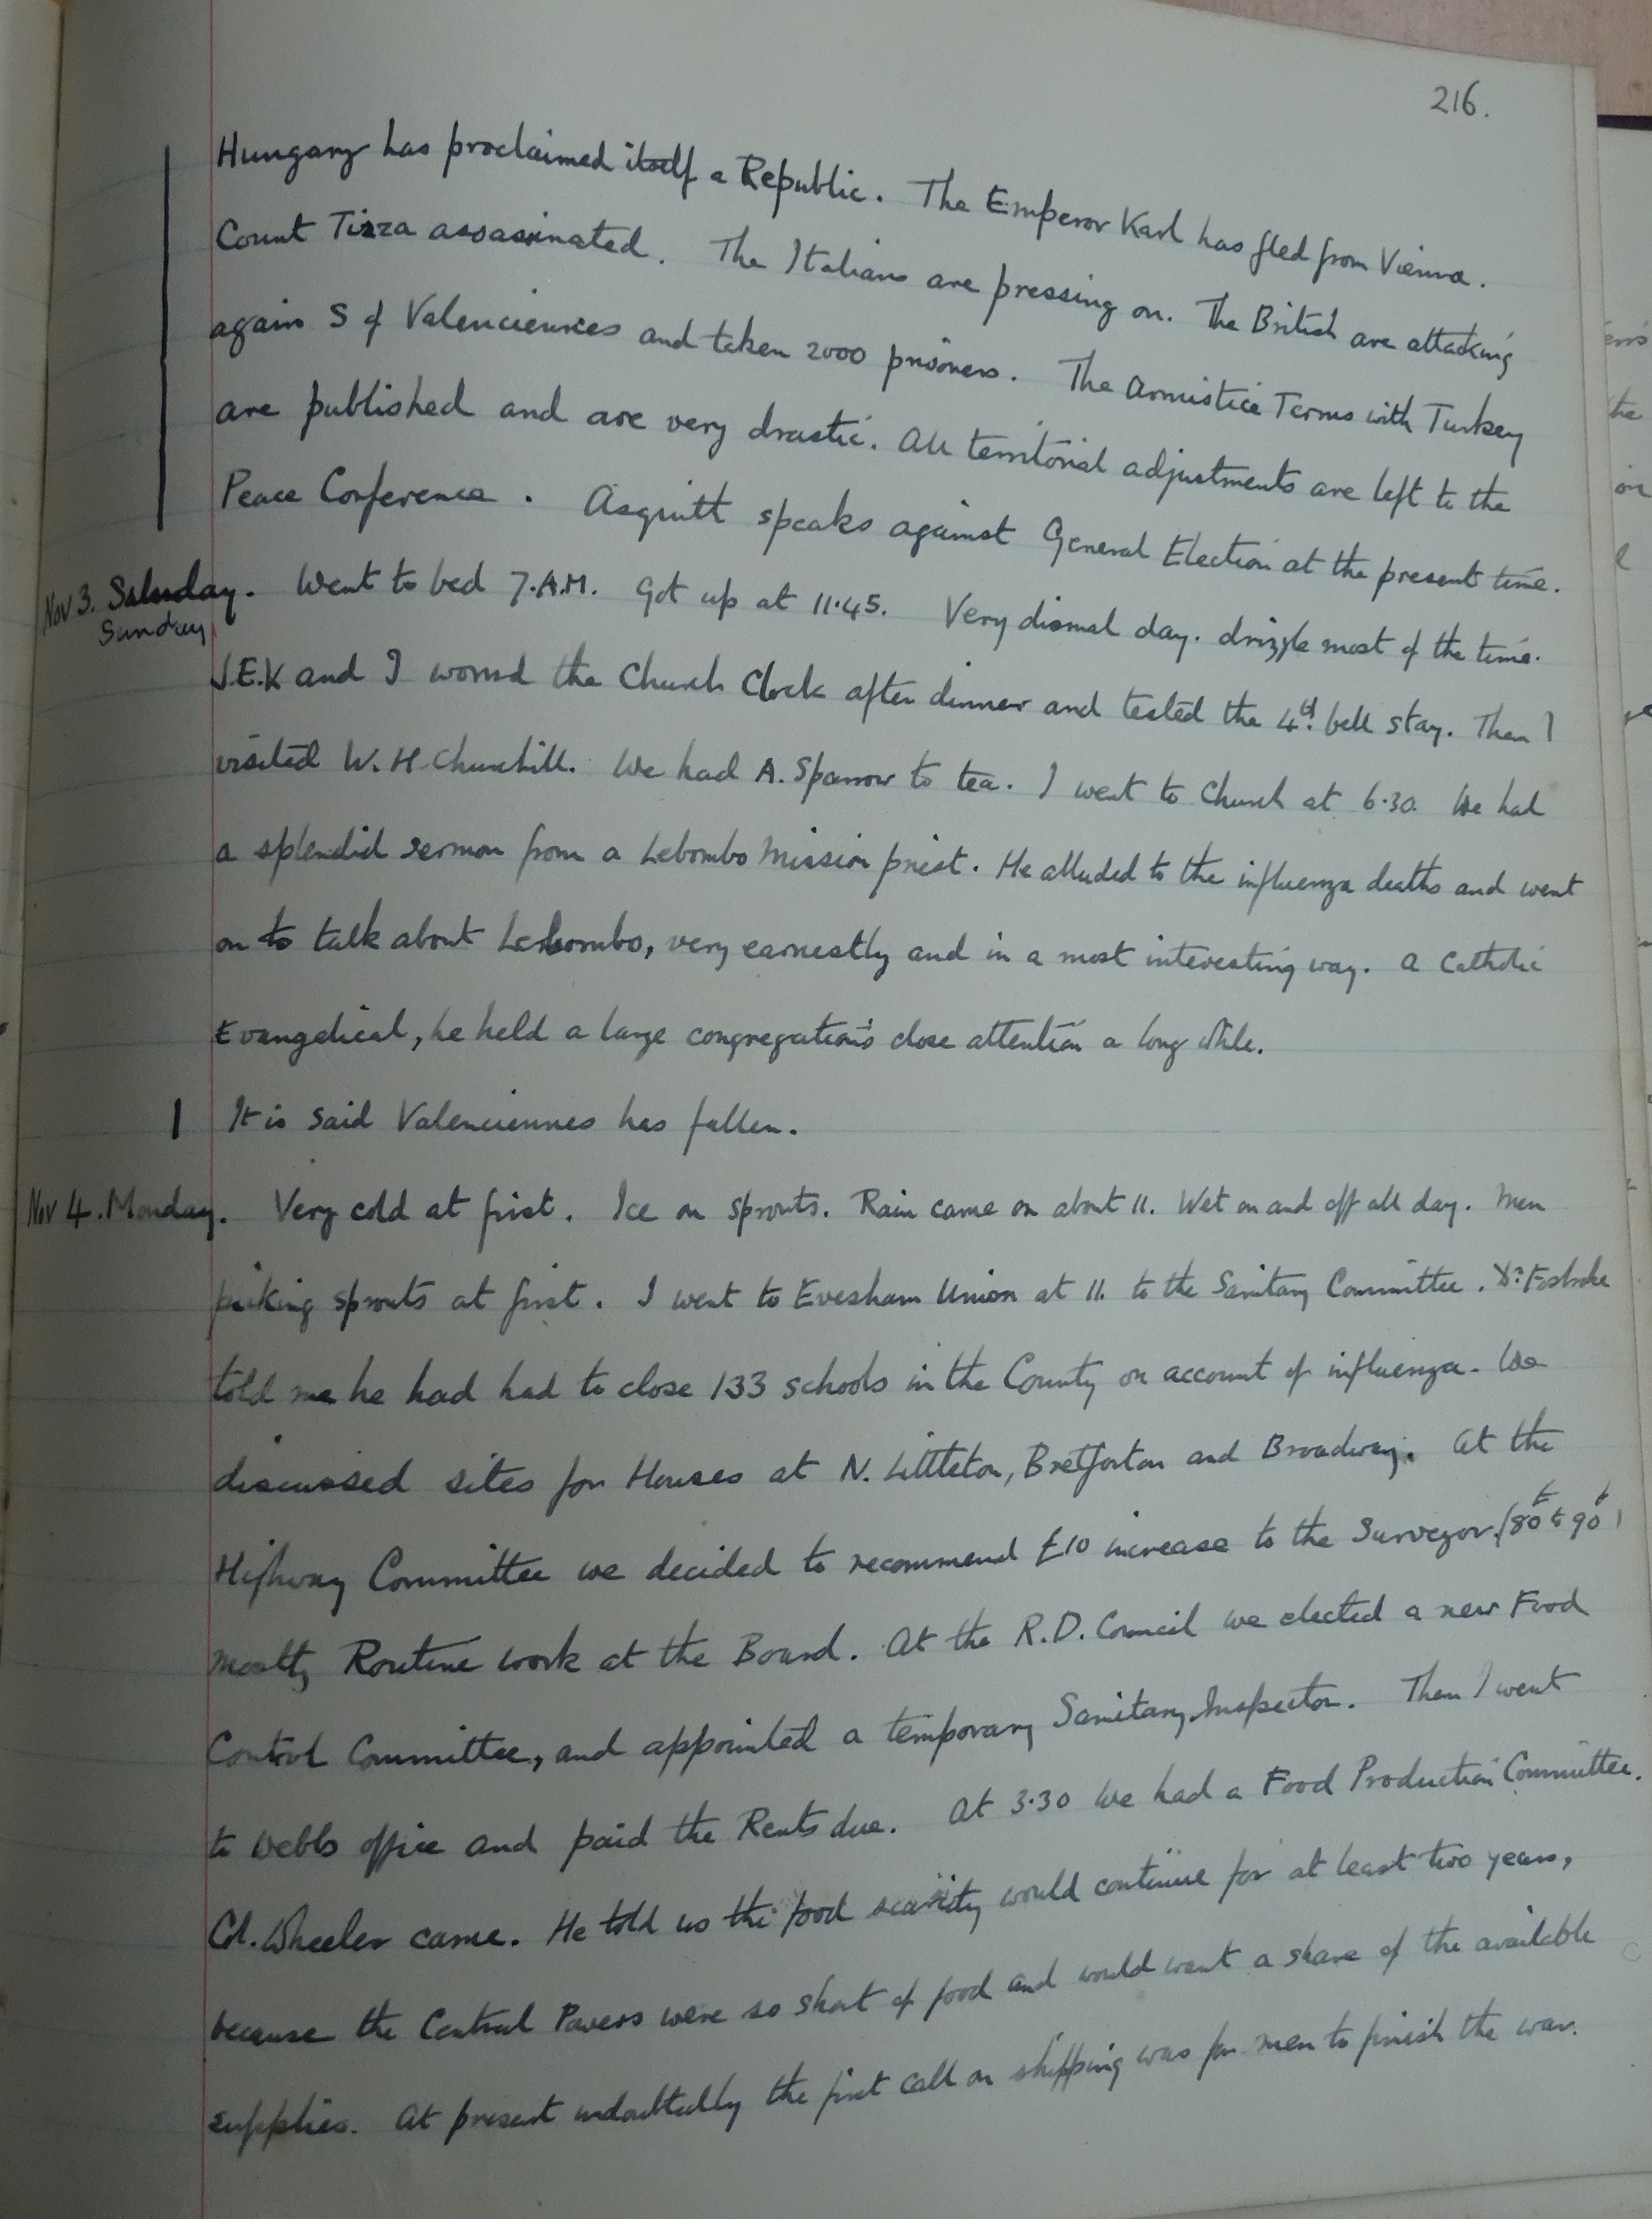 216.
Hungary has proclaimed itself a Republic. The Emperor Karl has fled from Vienna.
Count Tisza assassinated. The Italians are pressing on. The British are attacking
again S of Valenciennes and taken 2000 prisoners. The Armistice Terms with Turkey
are published and are very drastic. All territorial adjustments are left to the
Peace Conference. Asquith speaks against General Election at the present time.
Nov 3. Saturday. Went to bed 7.A.M. Got up at 11.45. Very dismal day. drizzle most of the time.
Sunday
J.E.K and I wound the Church Clock after dinner and tested the 4th bell stay. Then I
visited W. H. Churchill. We had A. Sparrow to tea. I went to Church at 6.30. We had
a splendid sermon from a Lebombo Mission priest. He alluded to the influenza deaths and went
on to talk about Lebombo, very earnestly and in a most interesting way. A Catholic
Evangelical, he held a large congregation's close attention a long while.
It is said Valenciennes has fallen.
Nov 4. Monday. Very cold at first. Ice on sprouts. Rain came on about 11. Wet on and off all day. Men
picking sprouts at first. I went to Evesham Union at 11. to the Sanitary Committee. Dr. Fosbroke
told me he had had to close 133 schools in the County on account of influenza. We
discussed sites for Houses at N. Littleton, Bretforton and Broadway. At the
Highway Committee we decided to recommend £10 increase to the Surveyor (80£ to 90£)
Mostly Routine work at the Board. At the R.D. Council we elected a new Food
Control Committee, and appointed a temporary Sanitary Inspector. Then I went
to Webbs office and paid the Rents due. At 3.30 We had a Food Production Committee.
Col. Wheeler came. He told us the food scarcity would continue for at least two years,
because the Central Powers were so short of food and would want a share of the available
supplies. At present undoubtedly the first call on shipping was for men to finish the war.